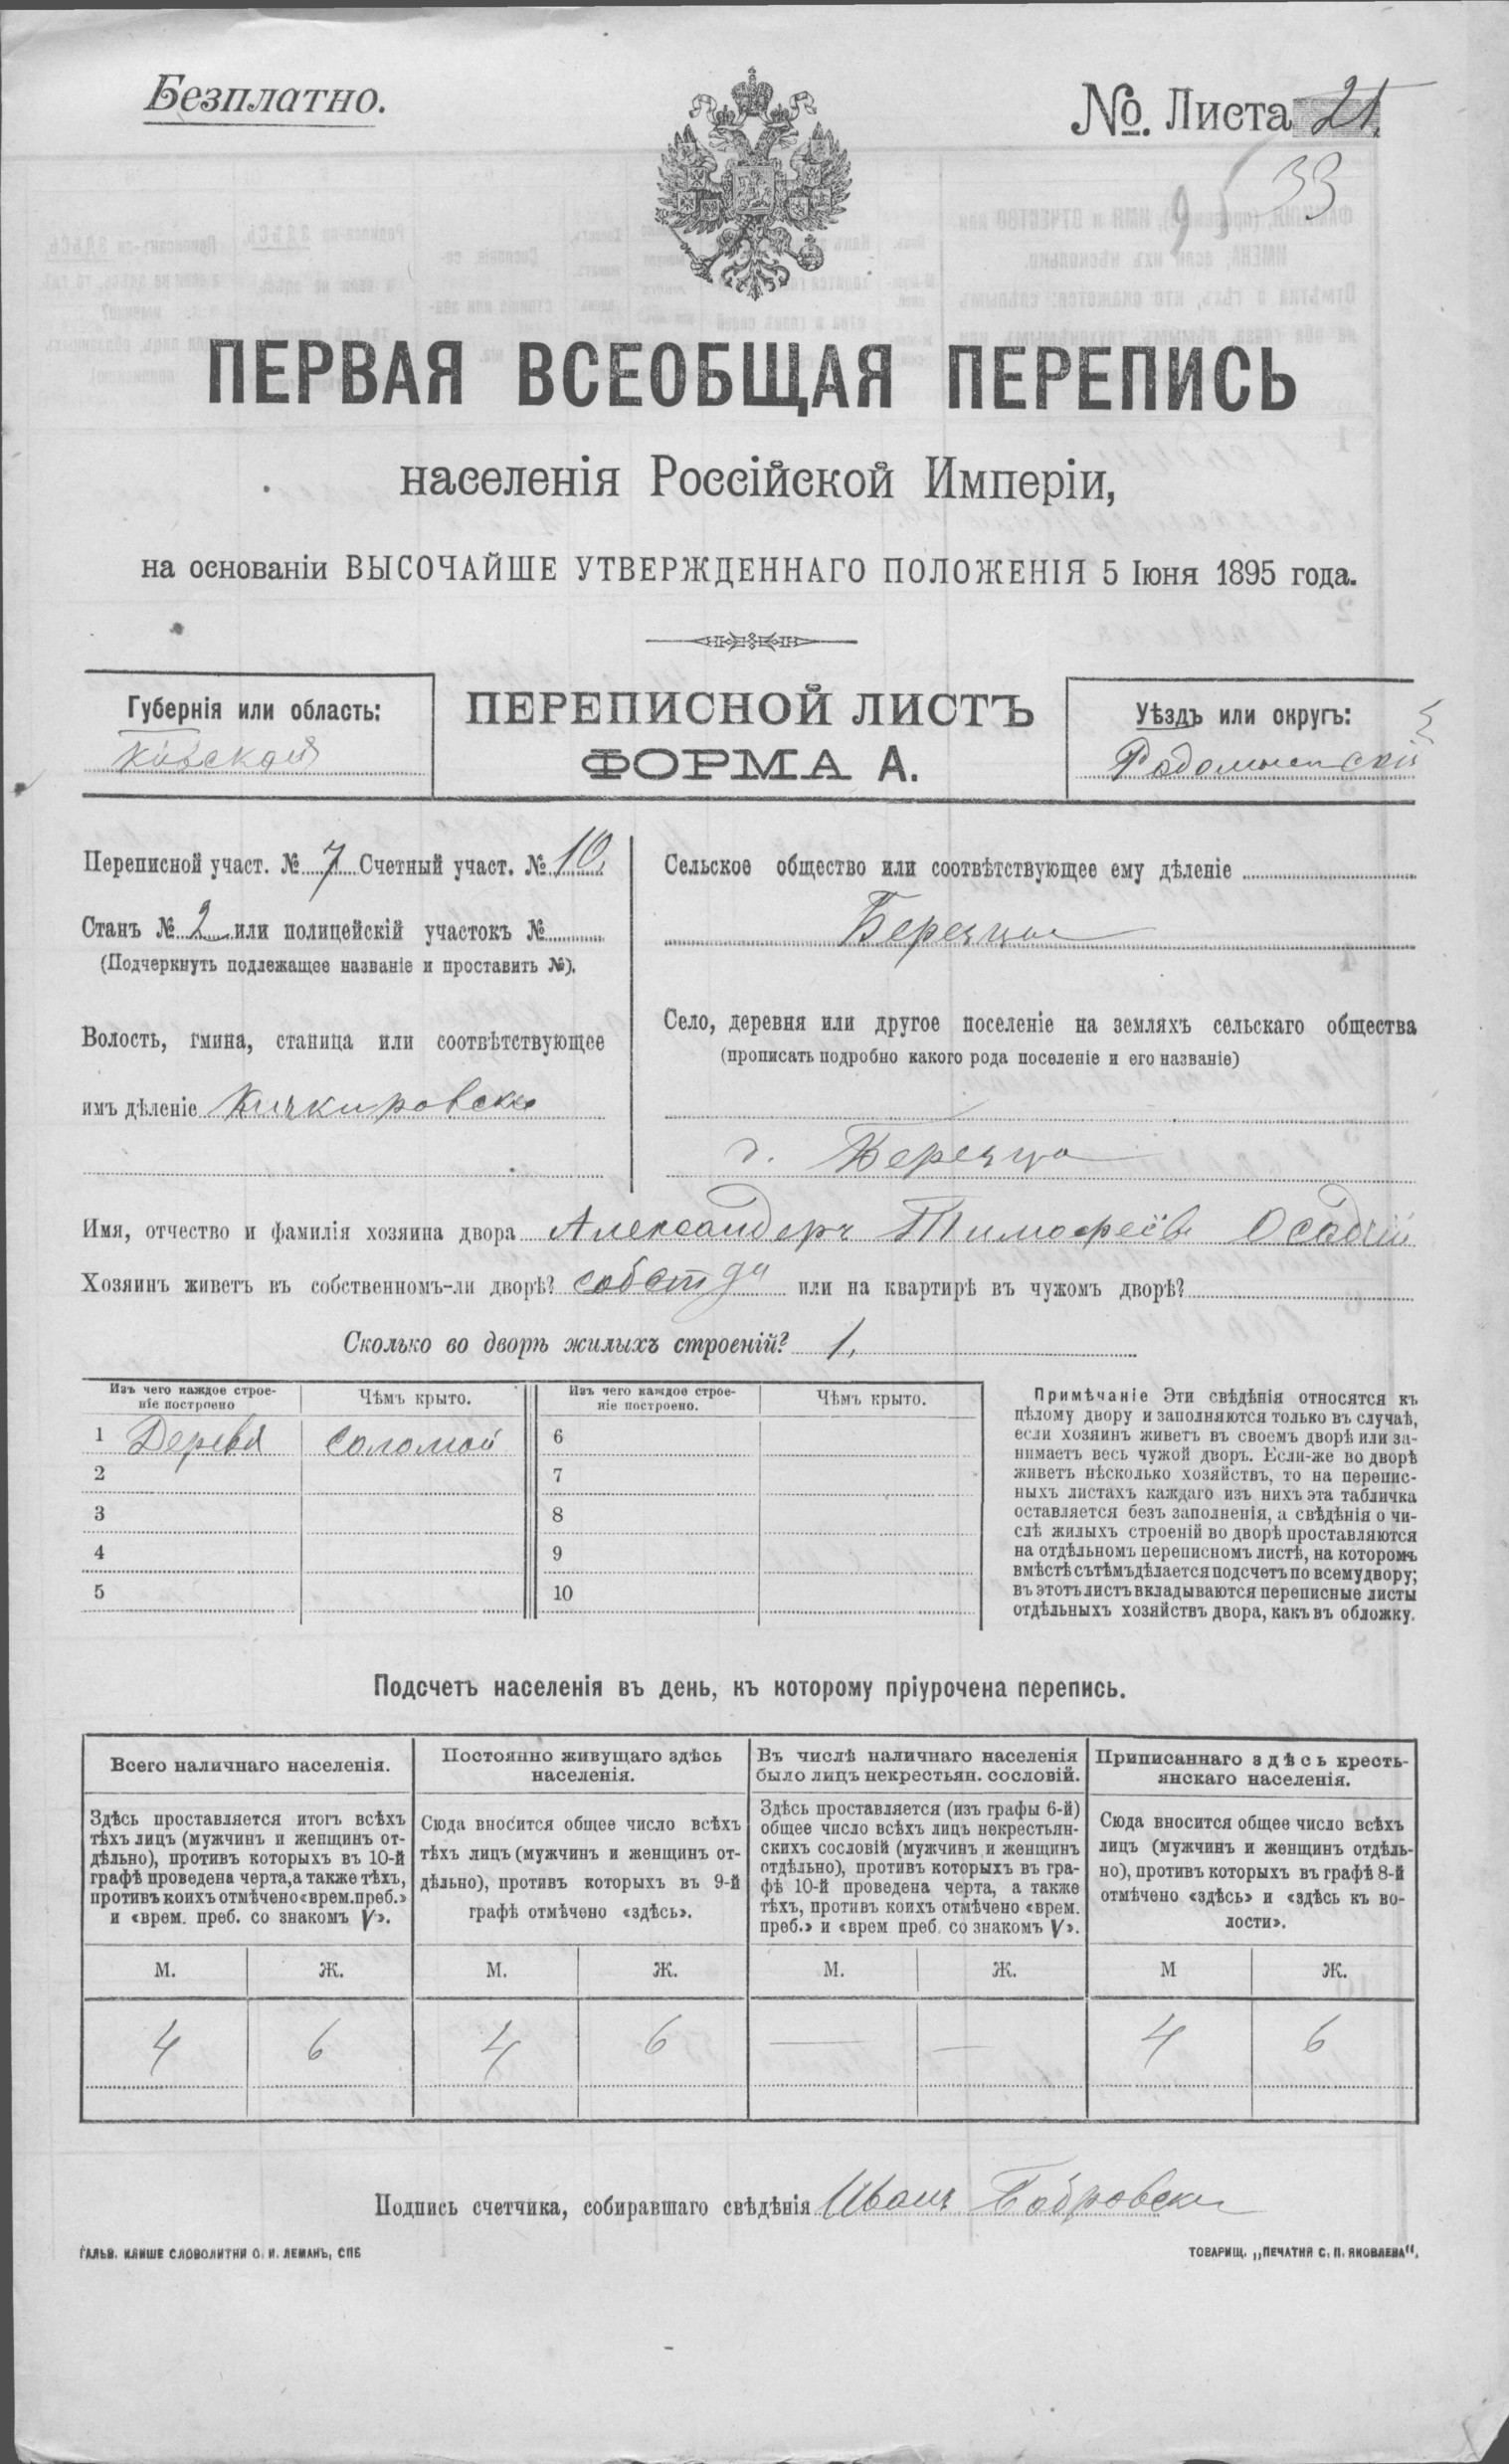 Безплатно.
№. Листа 21.
33
95
ПЕРВАЯ ВСЕОБЩАЯ ПЕРЕПИСЬ
населенія Россійской Имперіи,
на основаніи ВЫСОЧАЙШЕ УТВЕРЖДЕННАГО ПОЛОЖЕНІЯ 5 Іюня 1895 года.
Губернія или область:
Кіевская
ПЕРЕПИСНОЙ ЛИСТЪ
ФОРМА А.
Уѣздъ или округъ:
Радомысльскій
Переписной участ. № 7 Счетный участ. № 10.
Станъ № 2 или полицейскій участокъ №
(Подчеркнуть подлежащее названіе и проставить №).
Волость, гмина, станица или соотвѣтствующее
имъ дѣленіе Кичкировская
Сельское общество или соотвѣтствующее ему дѣленіе
Березцы
Село, деревня или другое поселеніе на земляхъ сельскаго общества
(прописать подробно какого рода поселеніе и его названіе)
д. Березца
Имя, отчество и фамилія хозяина двора Александеръ Тимофеівъ Осадчій
Хозяинъ живетъ въ собственномъ-ли дворѣ? собст да или на квартирѣ въ чужомъ дворѣ?
Сколько во дворѣ жилыхъ строеній? 1.
Изъ чего каждое строе-
ніе построено
Чѣмъ крыто.
Изъ чего каждое строе-
ніе построено.
Чѣмъ крыто.
1 Дерева соломой 6
2 7
3 8
4 9
5 10
Примѣчаніе Эти свѣдѣнія относятся къ
цѣлому двору и заполняются только въ случаѣ,
если хозяинъ живетъ въ своемъ дворѣ или за-
нимаетъ весь чужой дворъ. Если-же во дворѣ
живетъ нѣсколько хозяйствъ, то на перепис-
ныхъ листахъ каждаго изъ нихъ эта табличка
оставляется безъ заполненія, а свѣдѣнія о чи-
слѣ жилыхъ строеній во дворѣ проставляются
на отдѣльномъ переписномъ листѣ, на которомъ
вмѣстѣ съ тѣмъ дѣлается подсчетъ по всему двору;
въ этотъ листъ вкладываются переписные листы
отдѣльныхъ хозяйствъ двора, какъ въ обложку.
Подсчетъ населенія въ день, къ которому пріурочена перепись.
Всего наличнаго населенія.
Здѣсь проставляется итогъ всѣхъ
тѣхъ лицъ (мужчинъ и женщинъ от-
дѣльно), противъ которыхъ въ 10-й
графѣ проведена черта, а также тѣхъ,
противъ коихъ отмѣчено «врем. преб.»
и «врем. преб. со знакомъ V».
Постоянно живущаго здѣсь
населенія.
Сюда вносится общее число всѣхъ
тѣхъ лицъ (мужчинъ и женщинъ от-
дѣльно), противъ которыхъ въ 9-й
графѣ отмѣчено «здѣсь».
Въ числѣ наличнаго населенія
было лицъ некрестьян. сословій.
Здѣсь проставляется (изъ графы 6-й)
общее число всѣхъ лицъ некрестьян-
скихъ сословій (мужчинъ и женщинъ
отдѣльно), противъ которыхъ въ гра-
фѣ 10-й проведена черта, а также
тѣхъ, противъ коихъ отмѣчено «врем.
преб.» и «врем преб. со знакомъ V».
Приписаннаго здѣсь кресть-
янскаго населенія.
Сюда вносится общее число всѣхъ
лицъ (мужчинъ и женщинъ отдѣль-
но), противъ которыхъ въ графѣ 8-й
отмѣчено «здѣсь» и «здѣсь къ во-
лости».
М. Ж. М. Ж. М. Ж. М Ж.
4 6 4 6 — — 4 6
Подпись счетчика, собиравшаго свѣдѣнія Иванъ Бобровски
ГАЛЬВ. КЛИШЕ СЛОВОЛИТНИ О. И. ЛЕМАНЪ, СПБ
ТОВАРИЩ. „ПЕЧАТНЯ С. П. ЯКОВЛЕВА“.